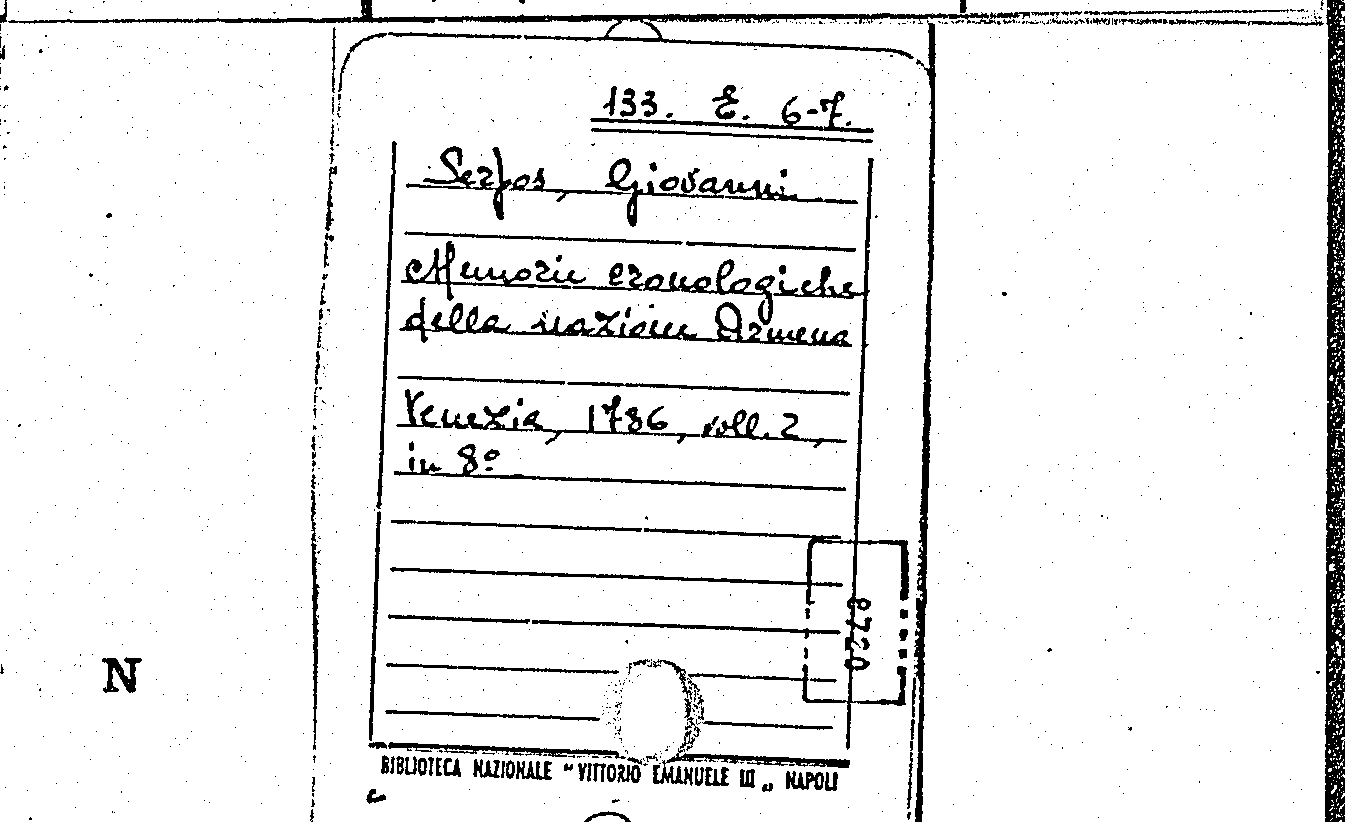 133. E. 6-7.
Serpos, Giovanni
Memorie cronologiche
della nazione Armena
Venezia, 1786, voll. 2,
in 8º
8720
N
BIBLIOTECA NAZIONALE "VITTORIO EMANUELE III„ NAPOLI